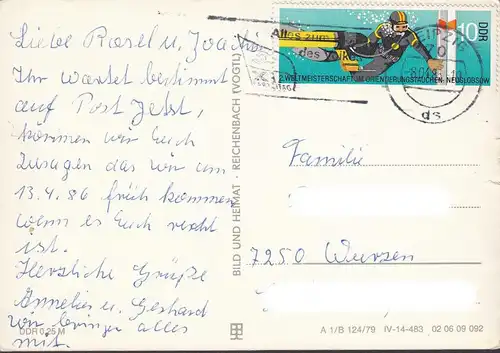 Liebe Rosel u. Joachim
Ihr wartet bestimmt
auf Post Jetzt,
können wir Euch
zusagen das wir am
13.4.86 früh kommen
wenn es Euch recht
ist.
Herzliche Grüße
Annelies u. Gerhard
wir bringen alles
mit.
DDR 0,25 M
BILD UND HEIMAT · REICHENBACH (VOGTL)
Alles zum
des Volkes
LEIPZIG
70
ds
10
DDR
2. WELTMEISTERSCHAFT IM ORIENTIERUNGSTAUCHEN · NEUGLOBSOW
Familie
7250 Wurzen
A 1/B 124/79 IV-14-483 02 06 09 092